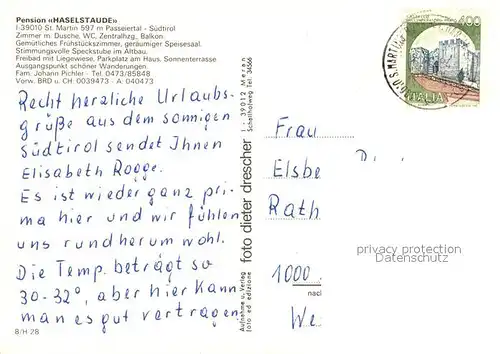 Pension «HASELSTAUDE»
I-39010 St. Martin 597 m Passeiertal - Südtirol
Zimmer m. Dusche, WC, Zentralhzg., Balkon.
Gemütliches Frühstückszimmer, geräumiger Speisesaal.
Stimmungsvolle Speckstube im Altbau.
Freibad mit Liegewiese, Parkplatz am Haus. Sonnenterrasse
Ausgangspunkt schöner Wanderungen.
Fam. Johann Pichler - Tel. 0473/85848
Vorw. BRD u. CH 0039473 - A 040473
Recht herzliche Urlaubs-
grüße aus dem sonnigen
Südtirol sendet Ihnen
Elisabeth Rogge.
Es ist wieder ganz pri-
ma hier und wir fühlen
uns rundherum wohl.
Die Temp. beträgt so
30-32°, aber hier kann
man es gut vertragen
8/H 28
Aufnahme u. Verlag
foto ed edizione
foto dieter drescher
I - 39012 Meran
Tel. 34566
400
ITALIA
S. MARTINO
Frau
Elsbe
Rath
1000
nach
We
privacy protection
DATENSCHUTZ